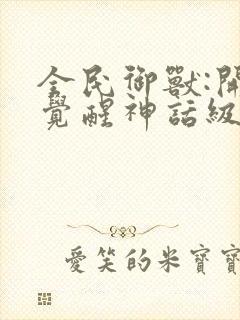 全民御獸:開
覺醒神話級
愛笑的米寶寶